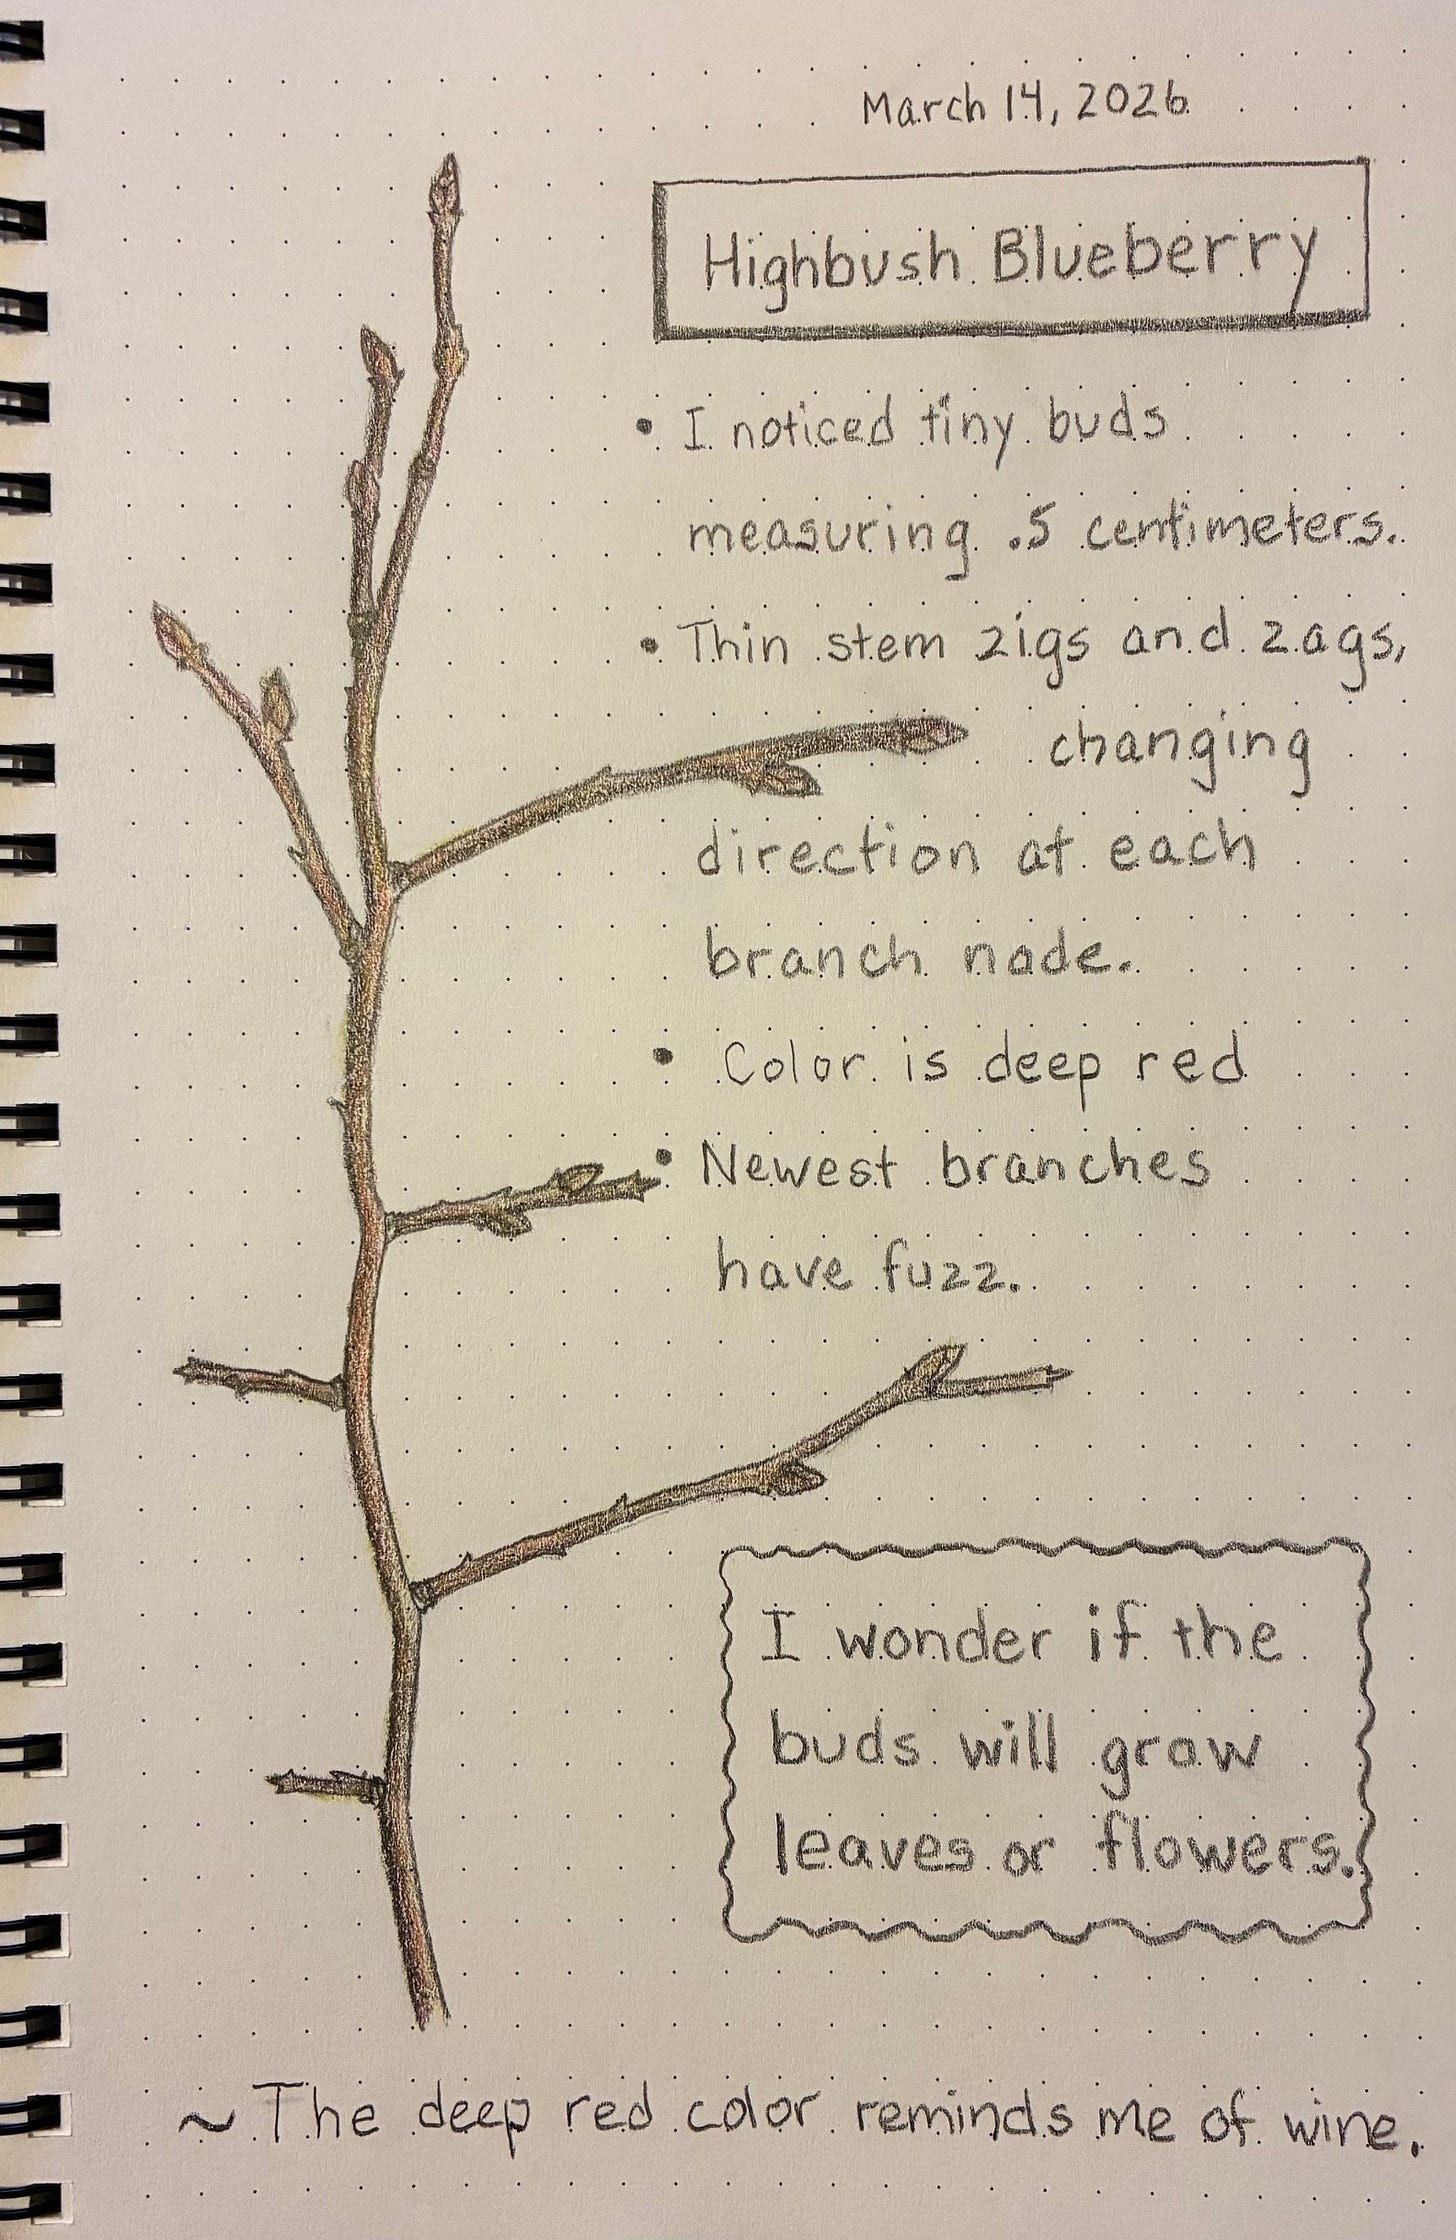 March 14, 2026
Highbush Blueberry
• I noticed tiny buds
measuring .5 centimeters.
• Thin stem zigs and zags,
changing
direction at each
branch node.
• Color is deep red
• Newest branches
have fuzz.
I wonder if the
buds will grow
leaves or flowers.
~ The deep red color reminds me of wine.